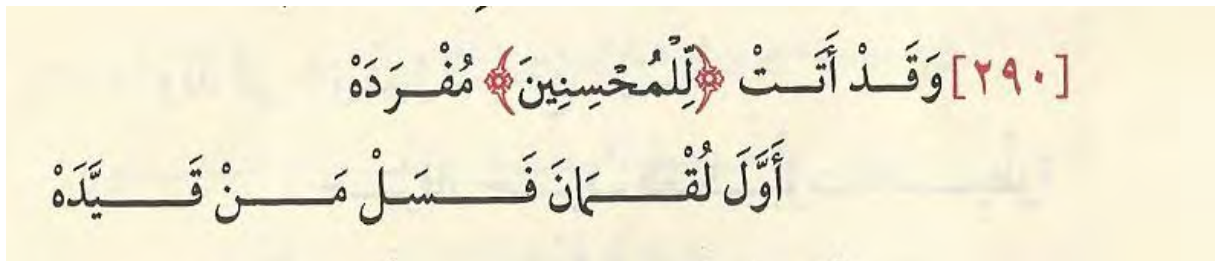 [٢٩٠] وَقَدْ أَتَتْ ﴿لِّلْمُحْسِنِينَ﴾ مُفْرَدَهْ
أَوَّلَ لُقْمَانَ فَسَلْ مَنْ قَيَّدَهْ